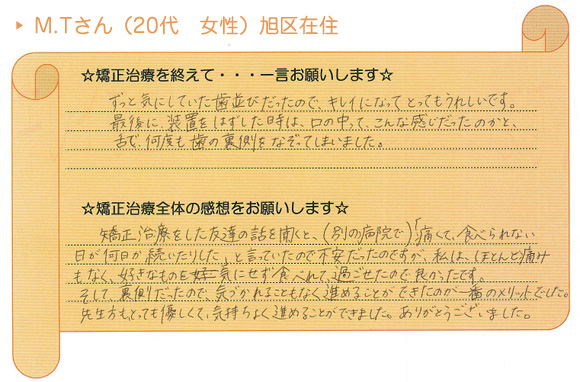 ▶ M.Tさん（20代　女性）旭区在住
☆矯正治療を終えて・・・一言お願いします☆
ずっと気にしていた歯並びだったので、キレイになってとってもうれしいです。
最後に装置をはずした時は、口の中って、こんな感じだったのかと、
舌で何度も歯の裏側をなぞってしまいました。
☆矯正治療全体の感想をお願いします☆
矯正治療をした友達の話を聞くと、(別の病院で)「痛くて、食べられない
日が何日か続いたりした」と言っていたので不安だったのですが、私は、ほとんど痛み
もなく、好きなものを気にせず食べれて過ごせたので良かったです。
そして、裏側だったので、気づかれることもなく進めることができたのが一番のメリットでした。
先生方もとっても優しくて、気持ちよく進めることができました。ありがとうございました。